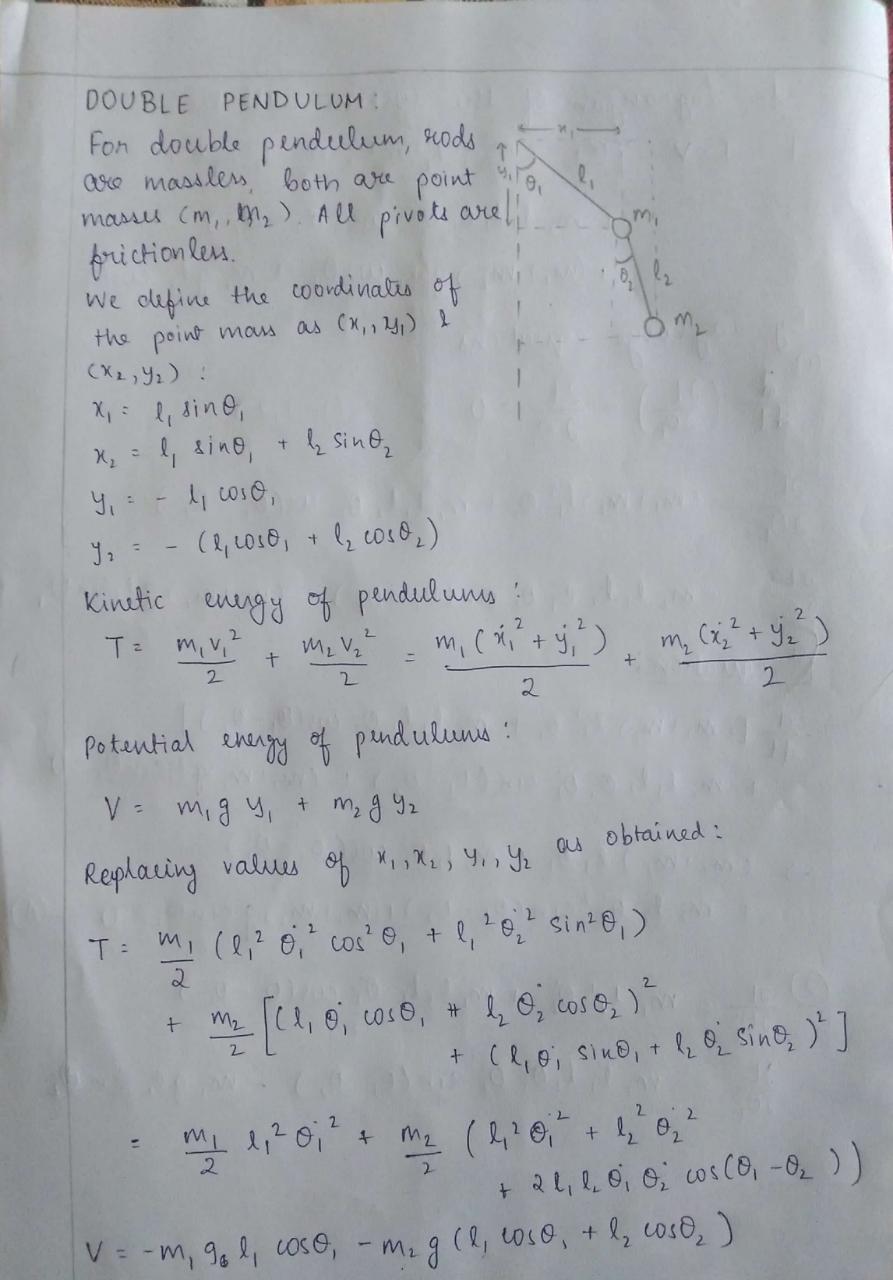 DOUBLE PENDULUM:
For double pendulum, rods
are massless, both are point
masses (m₁, m₂). All pivots are
frictionless.
We define the coordinates of
the point mass as (x₁, y₁) &
(x₂, y₂) :
x₁
y₁
θ₁
l₁
m₁
θ₂
l₂
m₂
x₁ = l₁ sinθ₁
x₂ = l₁ sinθ₁ + l₂ sinθ₂
y₁ = - l₁ cosθ₁
y₂ = - (l₁ cosθ₁ + l₂ cosθ₂)
Kinetic energy of pendulums :
T = m₁v₁²/2 + m₂v₂²/2 = m₁(ẋ₁² + ẏ₁²)/2 + m₂(ẋ₂² + ẏ₂²)/2
Potential energy of pendulums :
V = m₁g y₁ + m₂g y₂
Replacing values of x₁, x₂, y₁, y₂ as obtained :
T = m₁/2 (l₁² θ̇₁² cos²θ₁ + l₁² θ̇₂² sin²θ₁)
+ m₂/2 [(l₁ θ̇₁ cosθ₁ + l₂ θ̇₂ cosθ₂)²
+ (l₁ θ̇₁ sinθ₁ + l₂ θ̇₂ sinθ₂)²]
= m₁/2 l₁² θ̇₁² + m₂/2 (l₁² θ̇₁² + l₂² θ̇₂²
+ 2 l₁ l₂ θ̇₁ θ̇₂ cos(θ₁ - θ₂))
V = -m₁ g l₁ cosθ₁ - m₂g (l₁ cosθ₁ + l₂ cosθ₂)